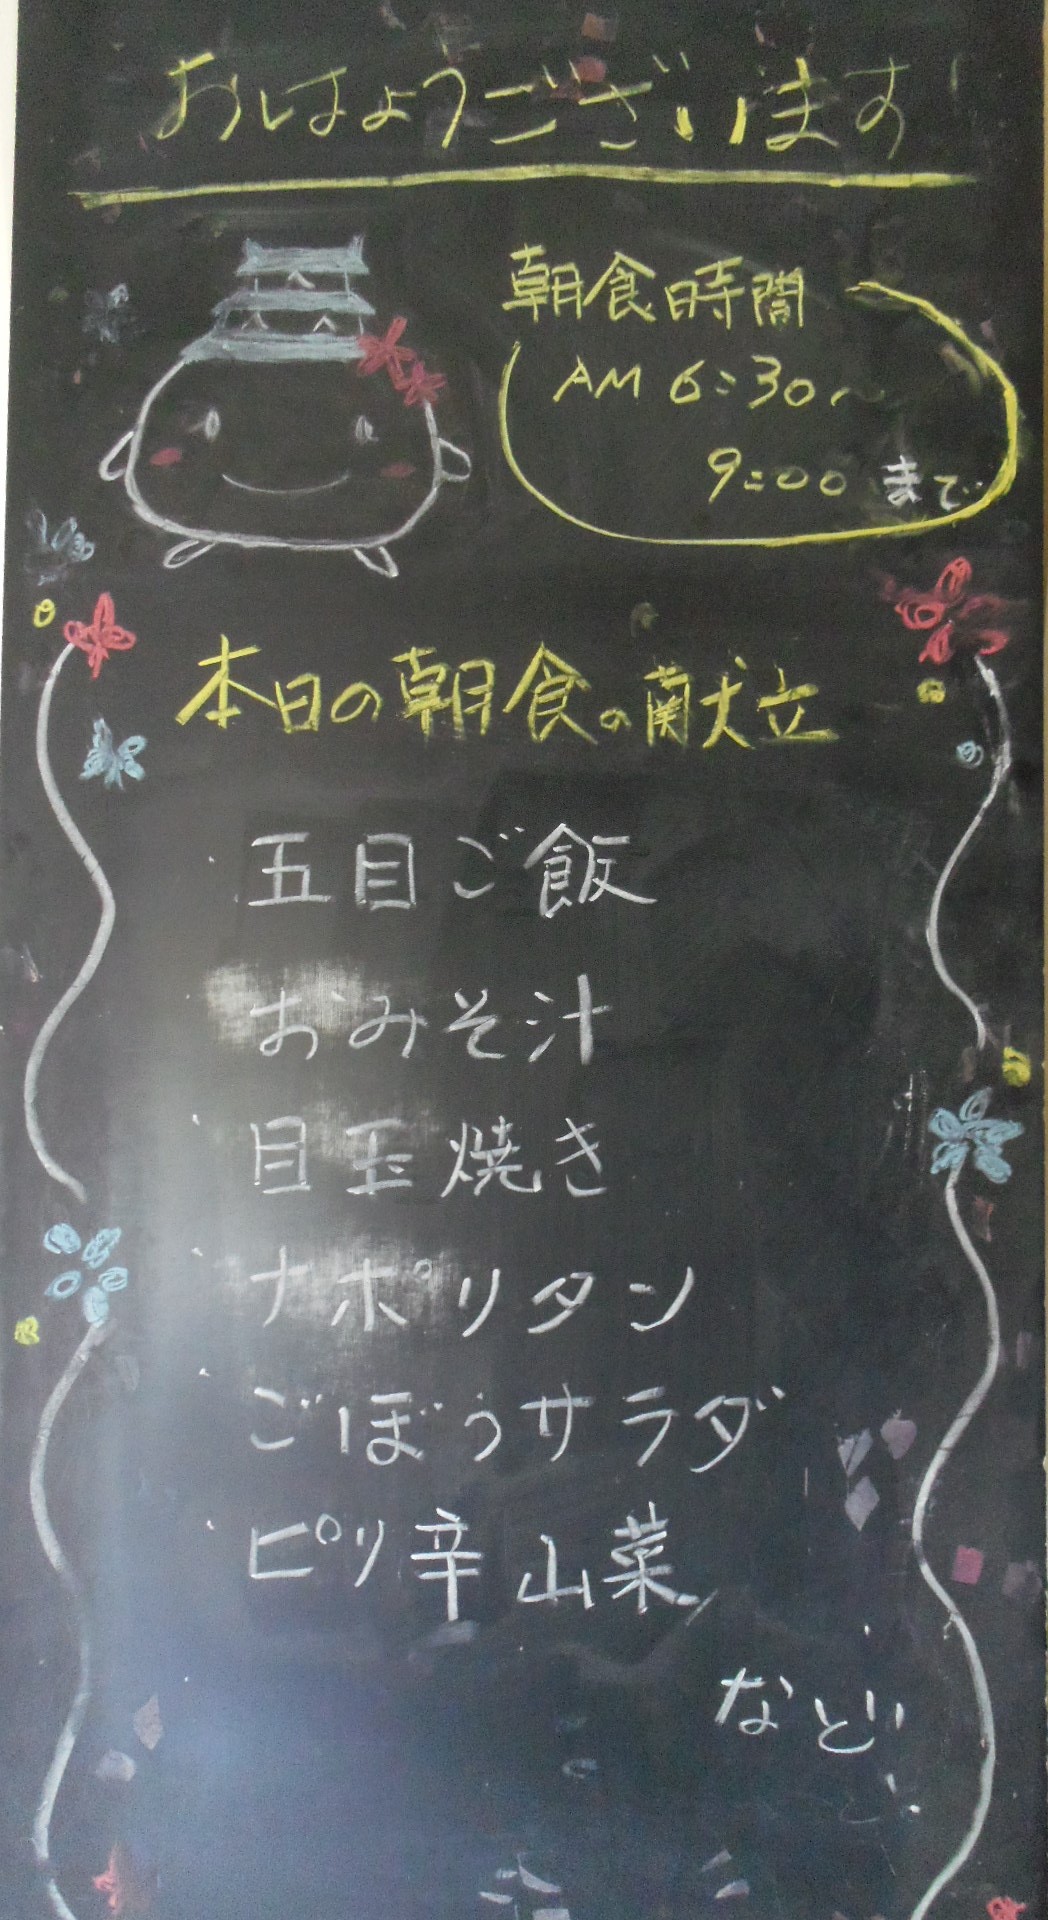 おはようございます
朝食時間
AM 6:30〜
9:00 まで
本日の朝食の献立
五目ご飯
おみそ汁
目玉焼き
ナポリタン
ごぼうサラダ
ピリ辛山菜
など